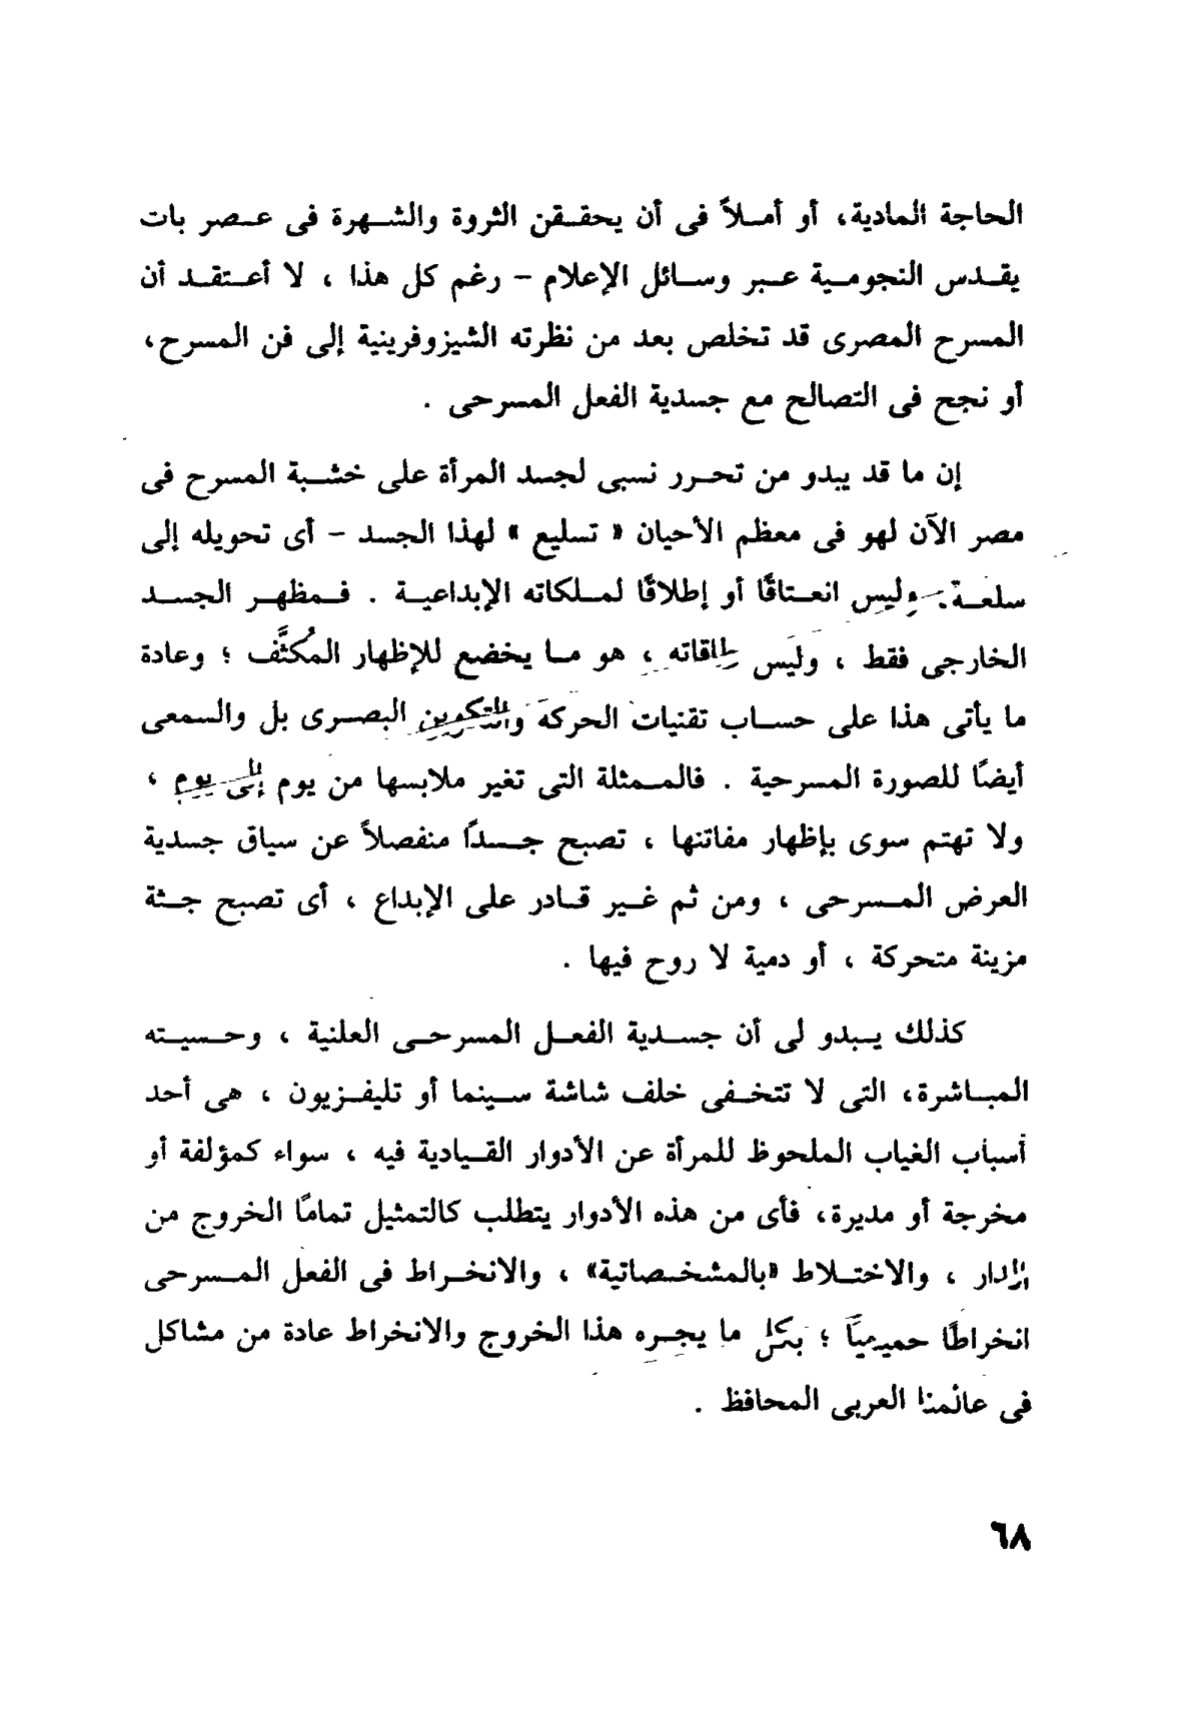 الحاجة المادية، أو أملاً فى أن يحققن الثروة والشهرة فى عصر بات
يقدس النجومية عبر وسائل الإعلام – رغم كل هذا ، لا أعتقد أن
المسرح المصرى قد تخلص بعد من نظرته الشيزوفرينية إلى فن المسرح،
أو نجح فى التصالح مع جسدية الفعل المسرحى .
إن ما قد يبدو من تحرر نسبى لجسد المرأة على خشبة المسرح فى
مصر الآن لهو فى معظم الأحيان « تسليع » لهذا الجسد – أى تحويله إلى
سلعة. وليس انعتاقًا أو إطلاقًا لملكاته الإبداعية . فمظهر الجسد
الخارجى فقط ، وليس طاقاته ، هو ما يخضع للإظهار المُكثَّف ؛ وعادة
ما يأتى هذا على حساب تقنيات الحركة والتكوين البصرى بل والسمعى
أيضًا للصورة المسرحية . فالممثلة التى تغير ملابسها من يوم إلى يوم ،
ولا تهتم سوى بإظهار مفاتنها ، تصبح جسدًا منفصلاً عن سياق جسدية
العرض المسرحى ، ومن ثم غير قادر على الإبداع ، أى تصبح جثة
مزينة متحركة ، أو دمية لا روح فيها .
كذلك يبدو لى أن جسدية الفعل المسرحى العلنية ، وحسيته
المباشرة، التى لا تتخفى خلف شاشة سينما أو تليفزيون ، هى أحد
أسباب الغياب الملحوظ للمرأة عن الأدوار القيادية فيه ، سواء كمؤلفة أو
مخرجة أو مديرة، فأى من هذه الأدوار يتطلب كالتمثيل تمامًا الخروج من
الدار ، والاختلاط «بالمشخصاتية» ، والانخراط فى الفعل المسرحى
انخراطًا حميميًا ؛ بكل ما يجره هذا الخروج والانخراط عادة من مشاكل
فى عالمنا العربى المحافظ .
٦٨